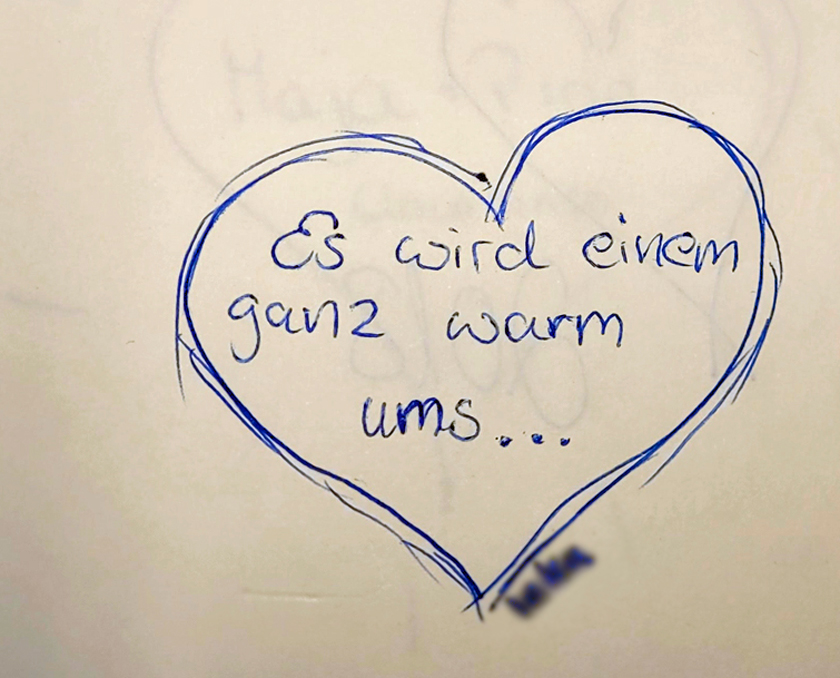 Es wird einem
ganz warm
ums...